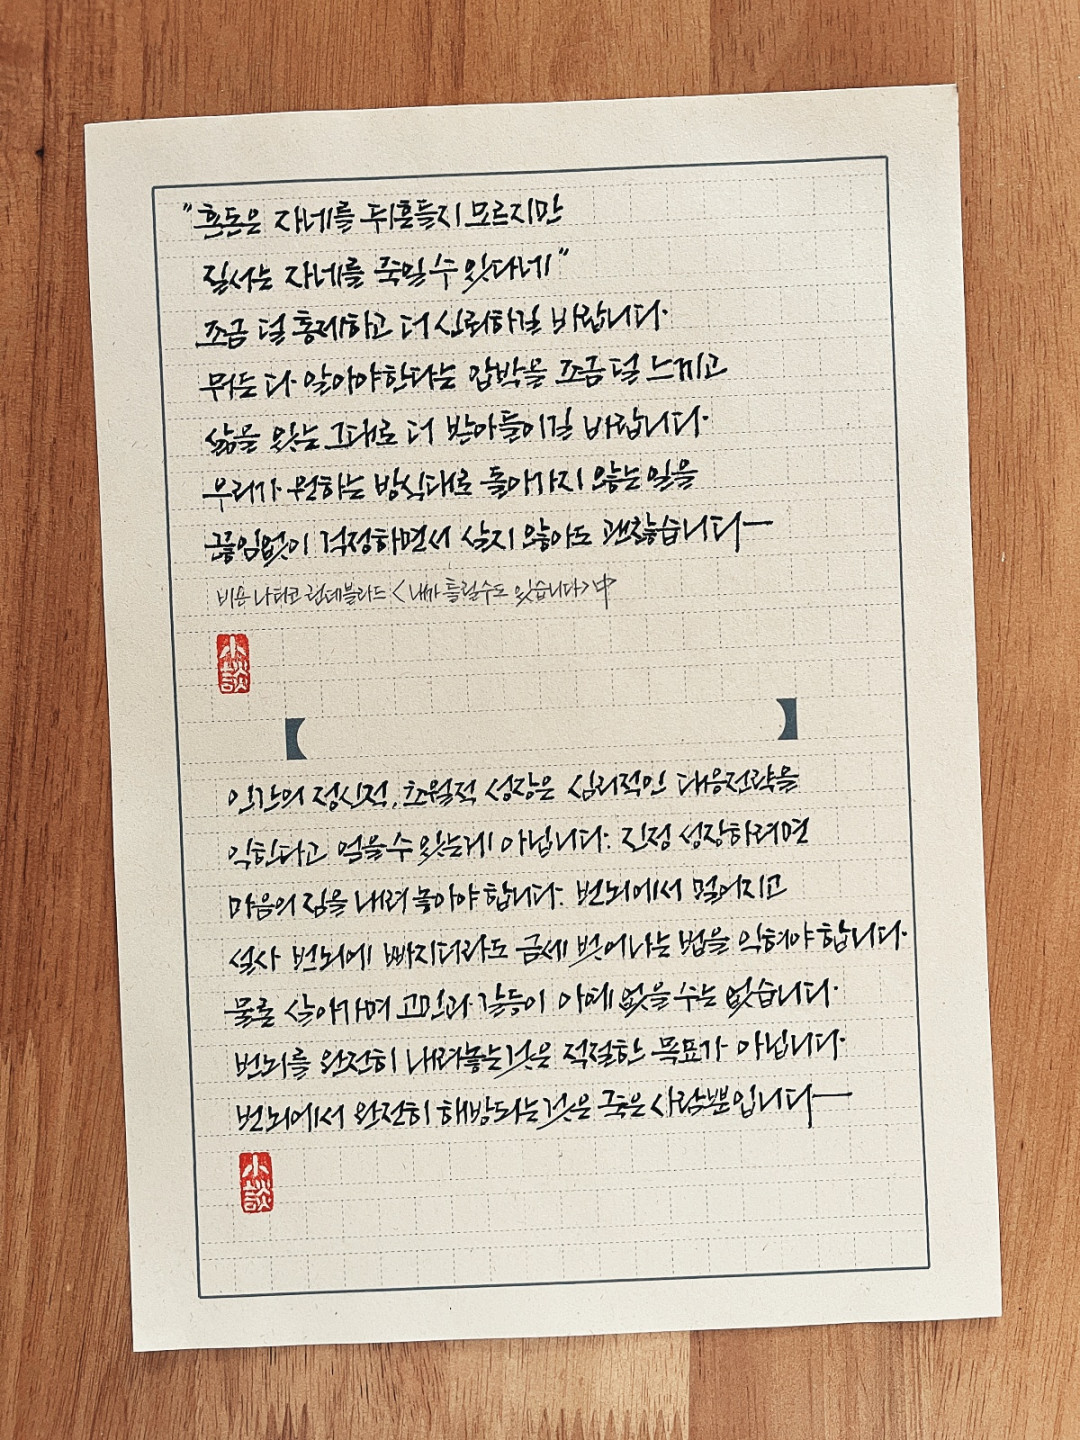 "혼돈은 자네를 뒤흔들지 모르지만
질서는 자네를 죽일 수 있다네"
조금 덜 통제하고 더 신뢰하길 바랍니다.
뭐든 다 알아야 한다는 압박을 조금 덜 느끼고
삶을 있는 그대로 더 받아들이길 바랍니다.
우리가 원하는 방식대로 돌아가지 않는 일을
끊임없이 걱정하면서 살지 않아도 괜찮습니다—
비욘 나티코 린데블라드 <내가 틀릴 수도 있습니다> 中
小談
인간의 정신적, 초월적 성장은 심리적인 대응전략을
익힌다고 얻을 수 있는게 아닙니다. 진정 성장하려면
마음의 짐을 내려 놓아야 합니다. 번뇌에서 멀어지고
설사 번뇌에 빠지더라도 금세 벗어나는 법을 익혀야 합니다.
물론 살아가며 고민과 갈등이 아예 없을 수는 없습니다.
번뇌를 완전히 내려놓는 것은 적절한 목표가 아닙니다.
번뇌에서 완전히 해방되는 것은 죽은 사람뿐입니다—
小談